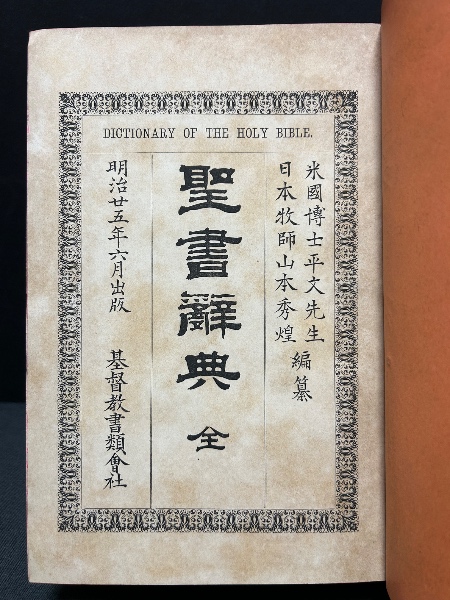 DICTIONARY OF THE HOLY BIBLE.
米國博士平文先生
日本牧師山本秀煌
編纂
聖書辭典 全
明治廿五年六月出版 基督教書類會社